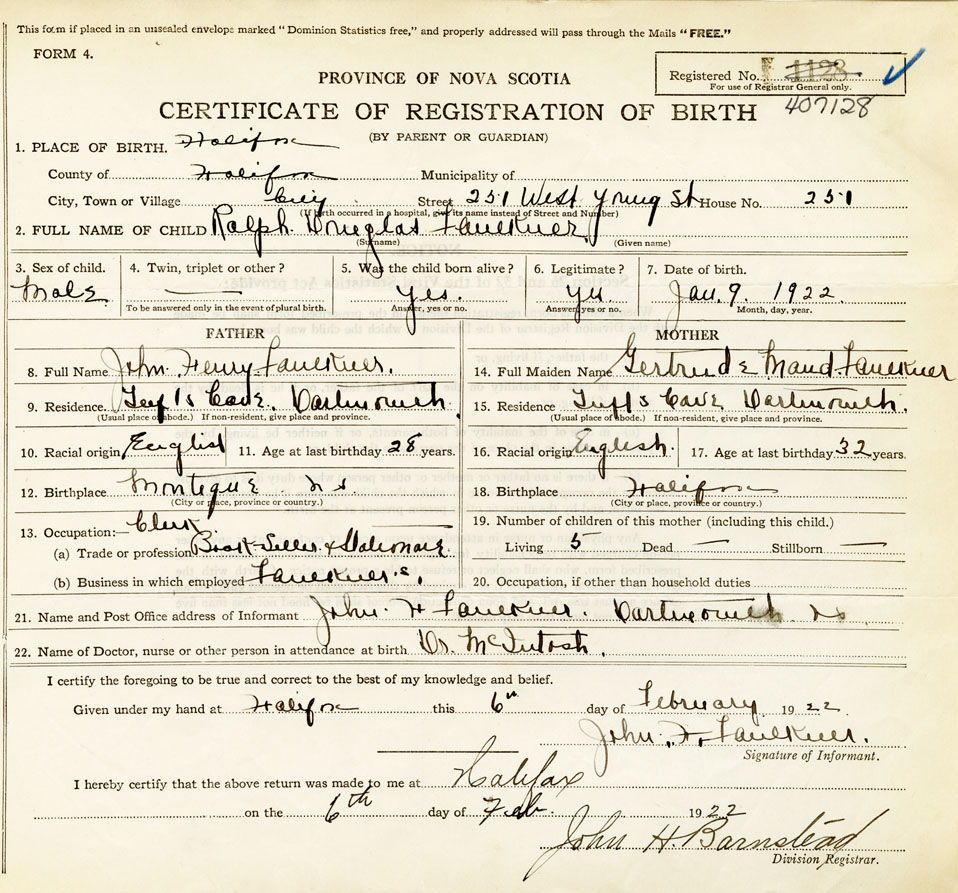 This form if placed in an unsealed envelope marked "Dominion Statistics free," and properly addressed will pass through the Mails "FREE."
FORM 4.
PROVINCE OF NOVA SCOTIA
Registered No. 1123
For use of Registrar General only.
CERTIFICATE OF REGISTRATION OF BIRTH 407128
(BY PARENT OR GUARDIAN)
1. PLACE OF BIRTH. Halifax
County of Halifax Municipality of
City, Town or Village City Street 251 West Young St House No. 251
(If birth occurred in a hospital, give its name instead of Street and Number)
2. FULL NAME OF CHILD Ralph Douglas Faulkner
(Surname) (Given name)
3. Sex of child. 4. Twin, triplet or other? 5. Was the child born alive? 6. Legitimate? 7. Date of birth.
Male — Yes. Yes Jan. 9. 1922.
To be answered only in the event of plural birth. Answer, yes or no. Answer, yes or no. Month, day, year.
FATHER MOTHER
8. Full Name John Henry Faulkner. 14. Full Maiden Name Gertrude Maud Faulkner
9. Residence. Tuff's Cave, Dartmouth. 15. Residence Tuff's Cave Dartmouth.
(Usual place of abode.) If non-resident, give place and province. (Usual place of abode.) If non-resident, give place and province.
10. Racial origin English 11. Age at last birthday 28 years. 16. Racial origin English. 17. Age at last birthday 32 years.
12. Birthplace Montegue N.S. 18. Birthplace Halifax
(City or place, province or country.) (City or place, province or country.)
13. Occupation:— Clerk 19. Number of children of this mother (including this child.)
(a) Trade or profession Book-Seller & Stationare Living 5 Dead — Stillborn —
(b) Business in which employed Faulkner's. 20. Occupation, if other than household duties
21. Name and Post Office address of Informant John. H Faulkner. Dartmouth NS
22. Name of Doctor, nurse or other person in attendance at birth Dr. McIntosh.
I certify the foregoing to be true and correct to the best of my knowledge and belief.
Given under my hand at Halifax this 6th day of February 1922.
John. H. Faulkner.
Signature of Informant.
I hereby certify that the above return was made to me at Halifax
on the 6th day of Feb. 1922
John H. Barnstead
Division Registrar.